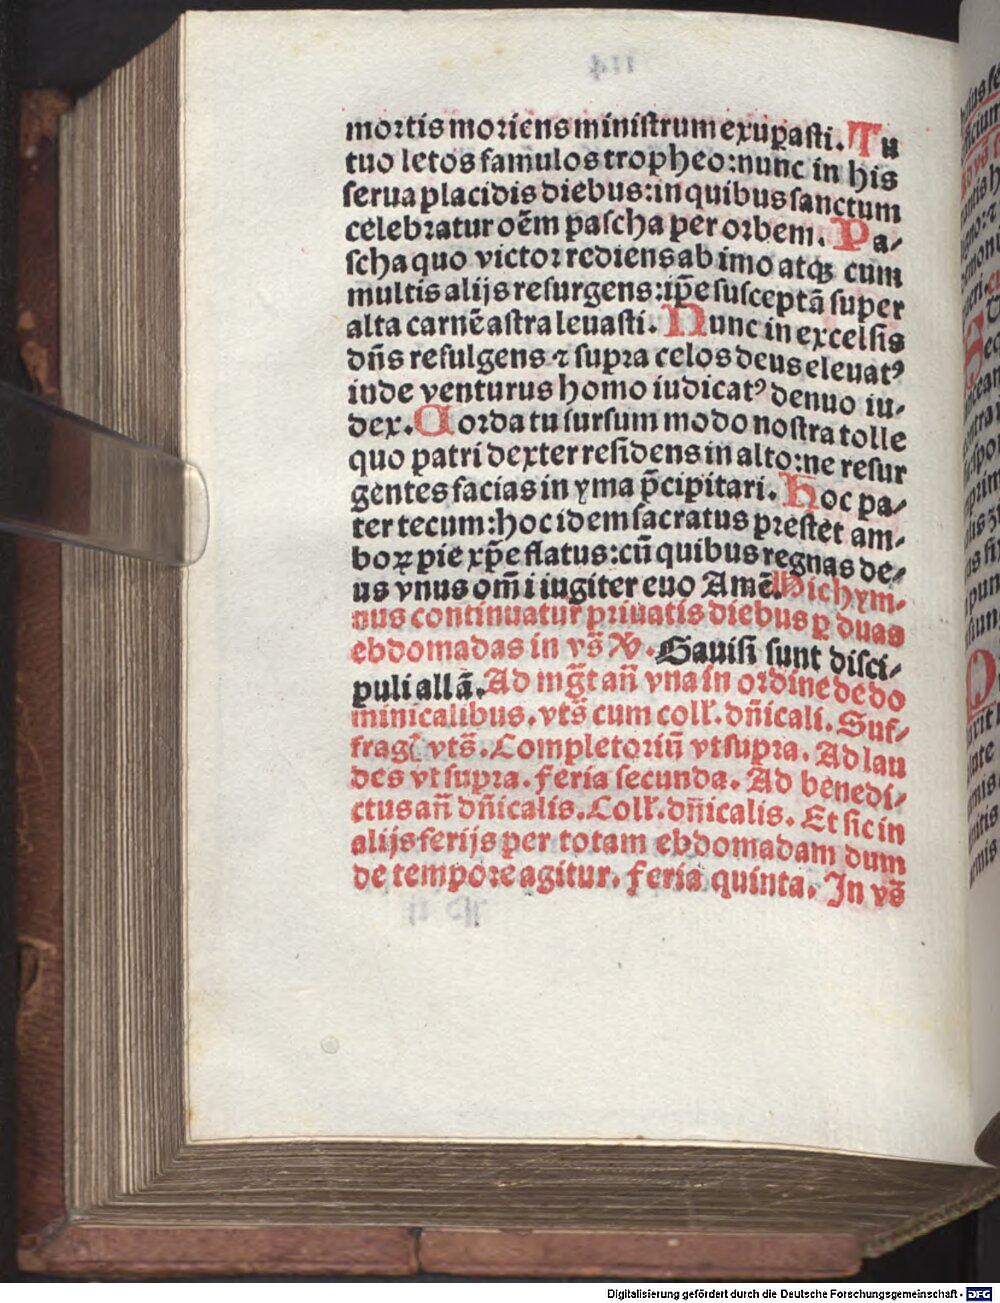 mortis moriens ministrum exuꝑasti. Tu
tuo letos famulos tropheo: nunc in his
serua placidis diebus: in quibus sanctum
celebratur oẽm pascha per orbem. Pa⸗
scha quo victor rediens ab imo atqꝫ cum
multis alijs resurgens: ip̃e susceptã super
alta carnẽ astra leuasti. Nunc in excelsis
dñs refulgens ⁊ supra celos deus eleuatꝰ
inde venturus homo iudicatꝰ denuo iu⸗
dex. Corda tu sursum modo nostra tolle
quo patri dexter residens in alto: ne resur
gentes facias in yma p̃cipitari. Hoc pa⸗
ter tecum: hoc idem sacratus prestet am⸗
boꝝ pie xp̃e flatus: cũ quibus regnas de⸗
us vnus om̃i iugiter euo Amẽ. Hic hym⸗
nus continuatur priuatis diebus ꝑ duas
ebdomadas in vs̃ Ꝟ. Gauisi sunt disci⸗
puli all̃a. Ad mg̃t añ vna in ordine de do
minicalibus. vts̃ cum coll̃. dñicali. Suf⸗
frag̃ vts̃. Completoriũ vt supra. Ad lau
des vt supra. feria secunda. Ad benedi⸗
ctus añ dñicalis. Coll̃. dñicalis. Et sic in
alijs ferijs per totam ebdomadam dum
de tempore agitur. feria quinta. In vs̃
Digitalisierung gefördert durch die Deutsche Forschungsgemeinschaft - DFG